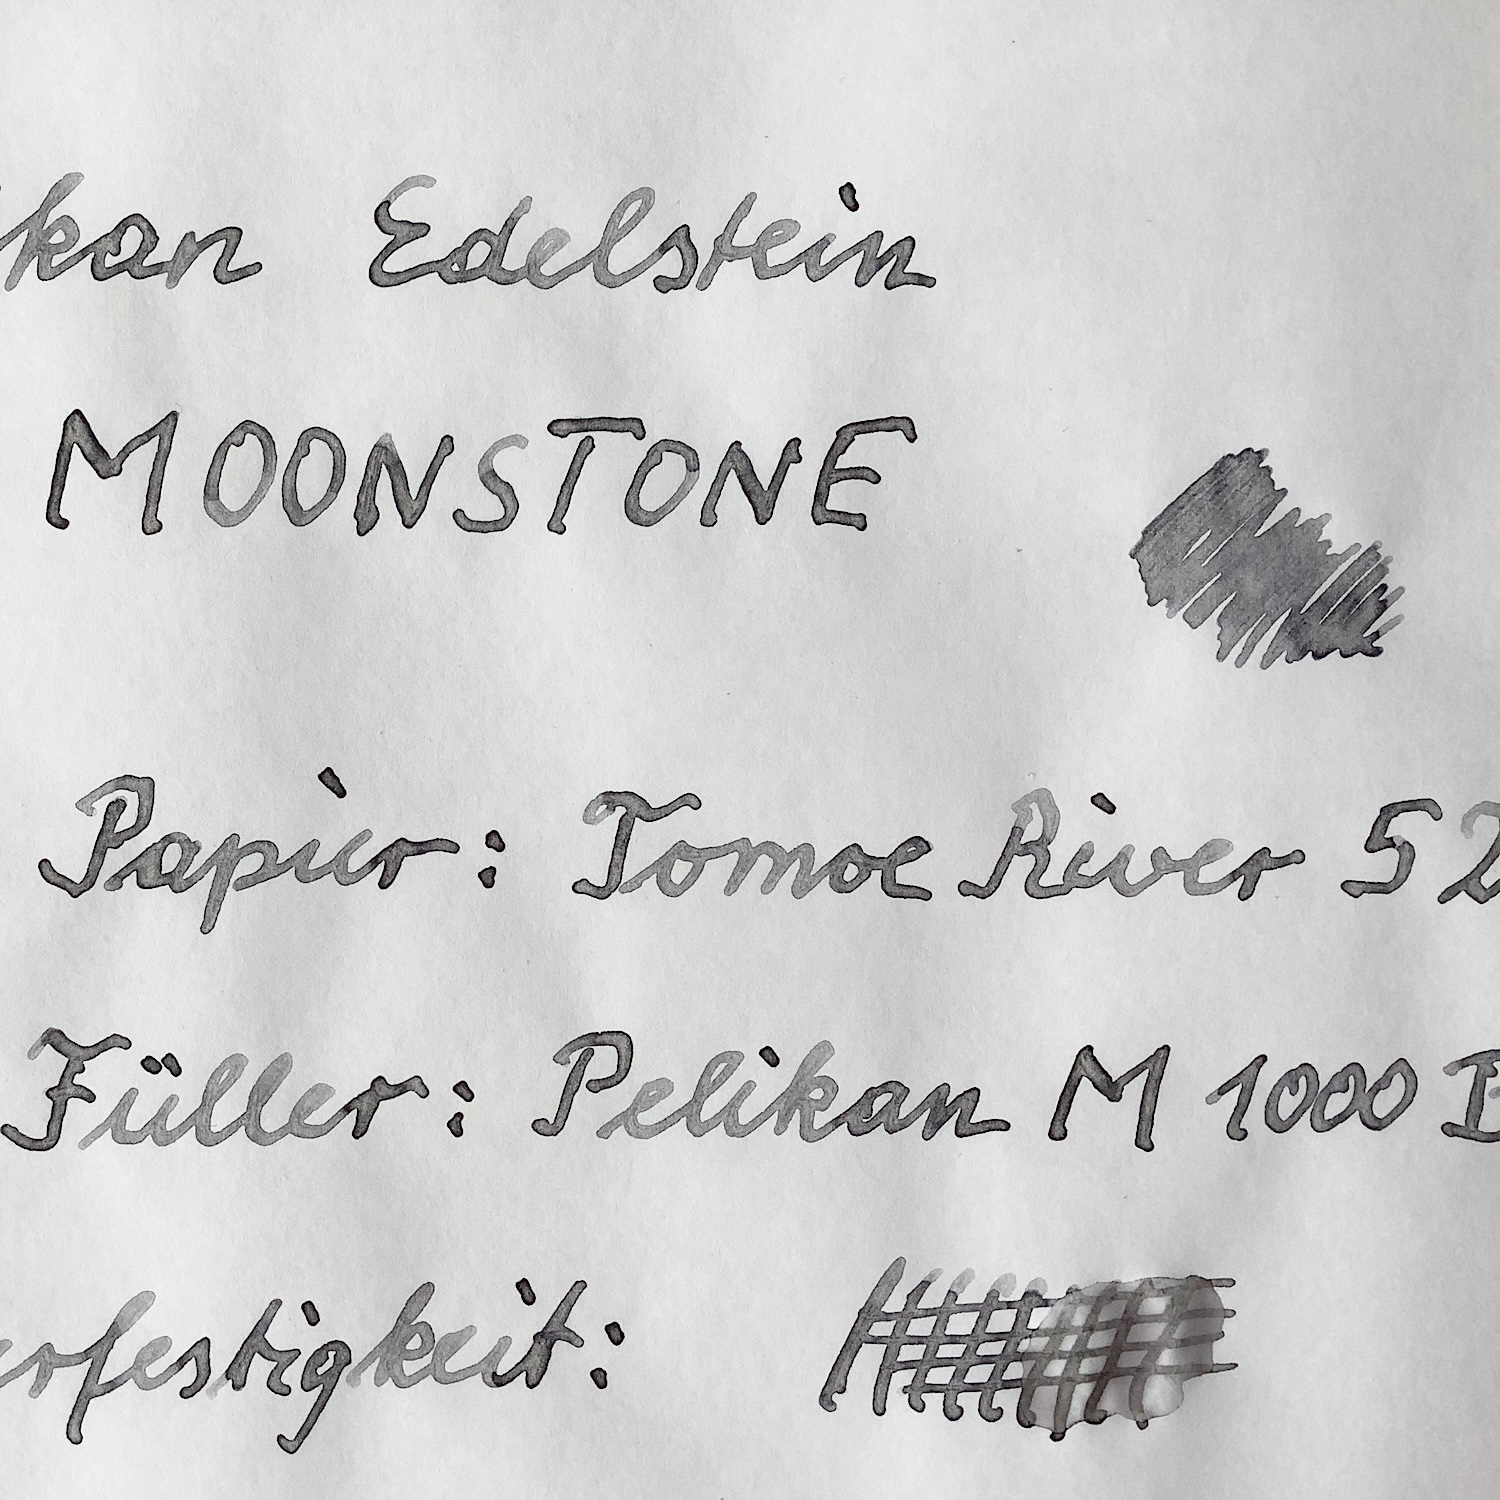 kan Edelstein
MOONSTONE
Papier: Tomoe River 52
Füller: Pelikan M 1000 B
erfestigkeit: